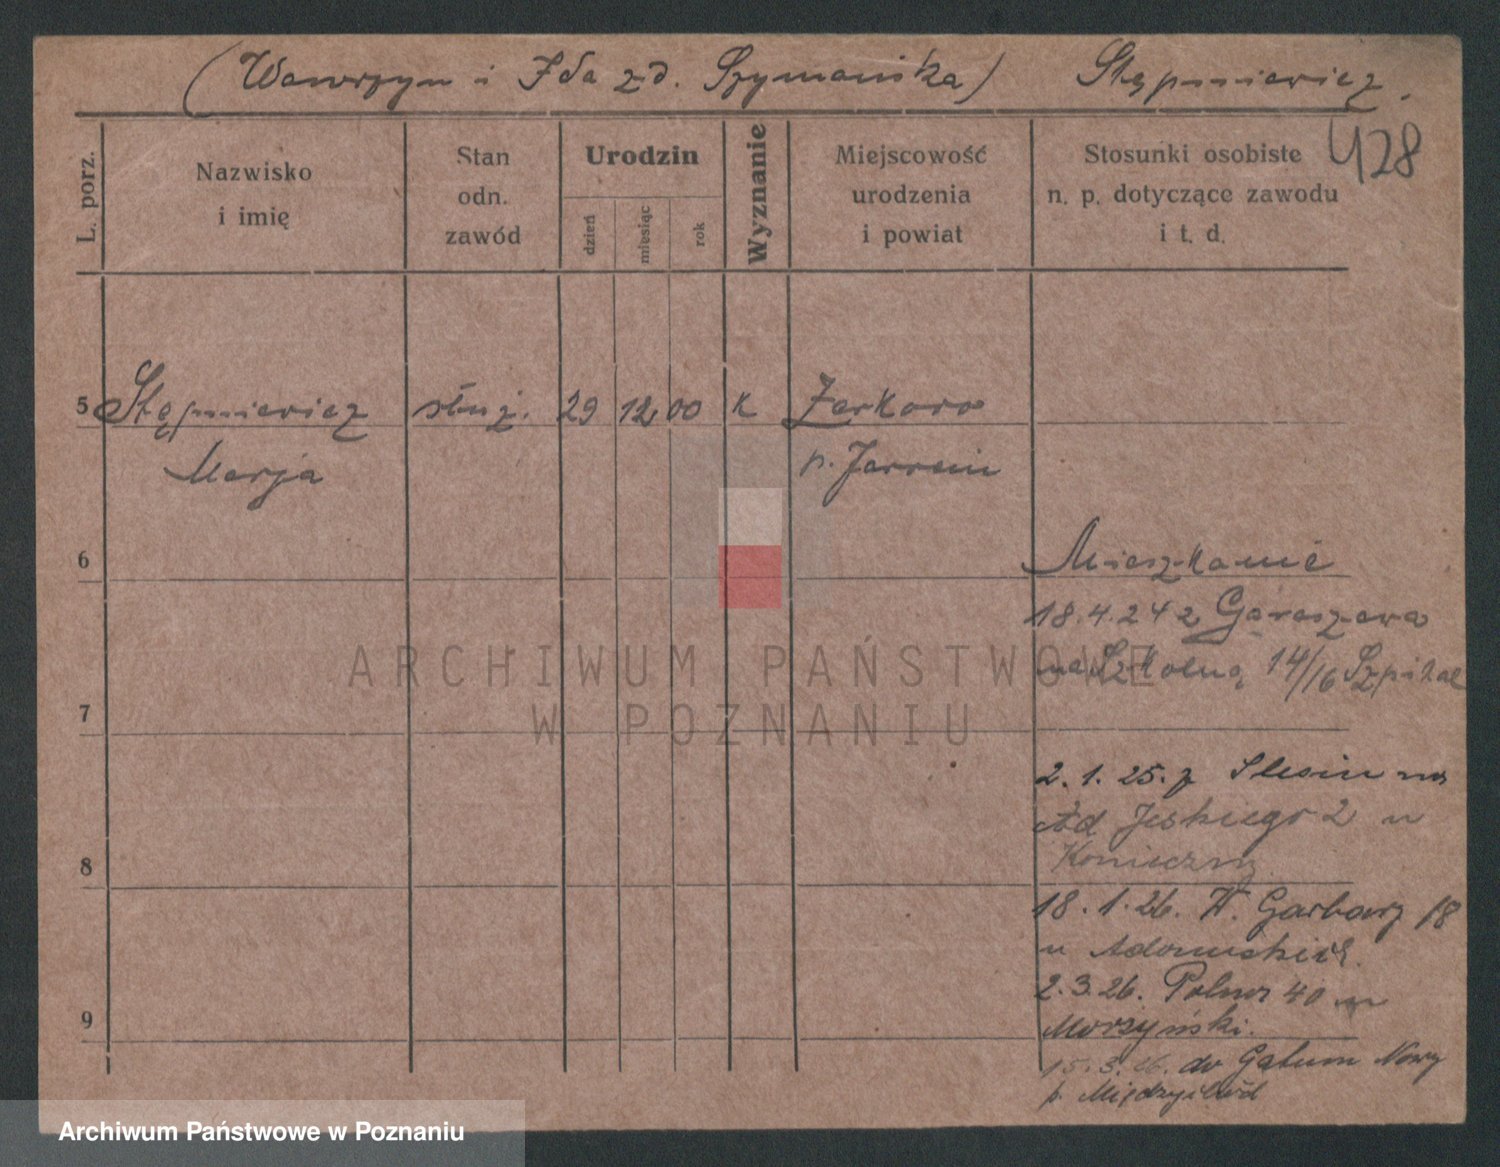 (Wawrzyn i Ida zd. Szymańska) Stępniewicz.
428
L. porz.
Nazwisko
i imię
Stan
odn.
zawód
Urodzin
dzień
miesiąc
rok
Wyznanie
Miejscowość
urodzenia
i powiat
Stosunki osobiste
n. p. dotyczące zawodu
i t. d.
5 Stępniewicz służ. 29 12 00 K Żerkowo
Marja p. Jarocin
6 Mieszkanie
18.4.24 z
na Szkolną 14/16 Szpital
ARCHIWUM PAŃSTWOWE
W POZNANIU
7
2.1.25. z Slesin na
Jeskiego 2 u
8
18.1.26. W. Garbary 18
u Adamskich.
2.3.26. Polna 40 u
9 Morzyński.
15.3.26. do Nowy
p. Międzychód
Archiwum Państwowe w Poznaniu